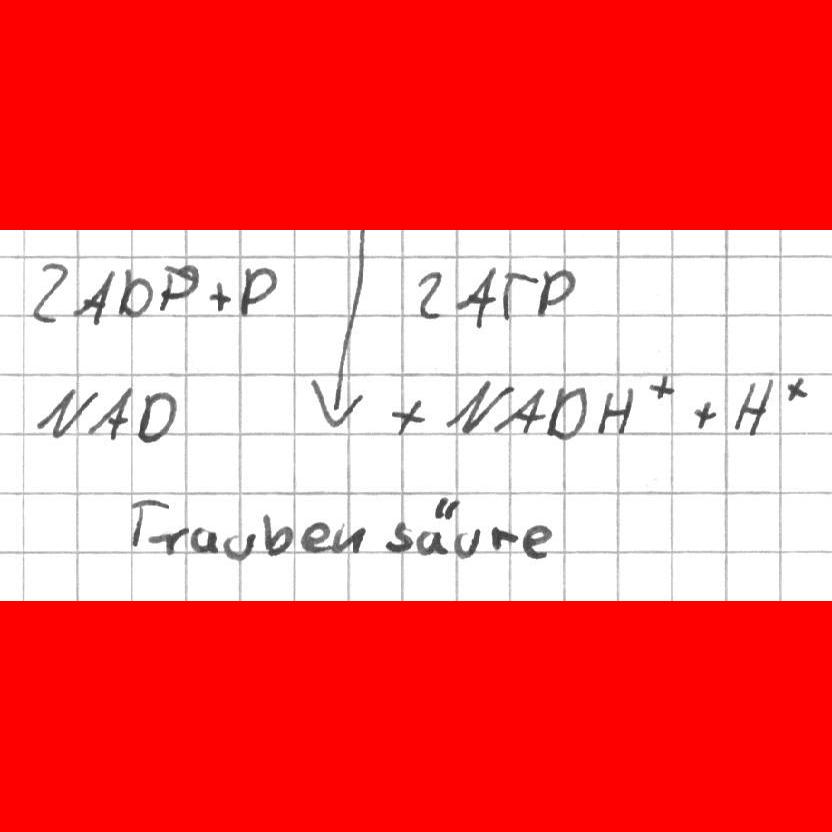 2ADP+P 2ATP
NAD + NADH⁺ + H⁺
Traubensäure